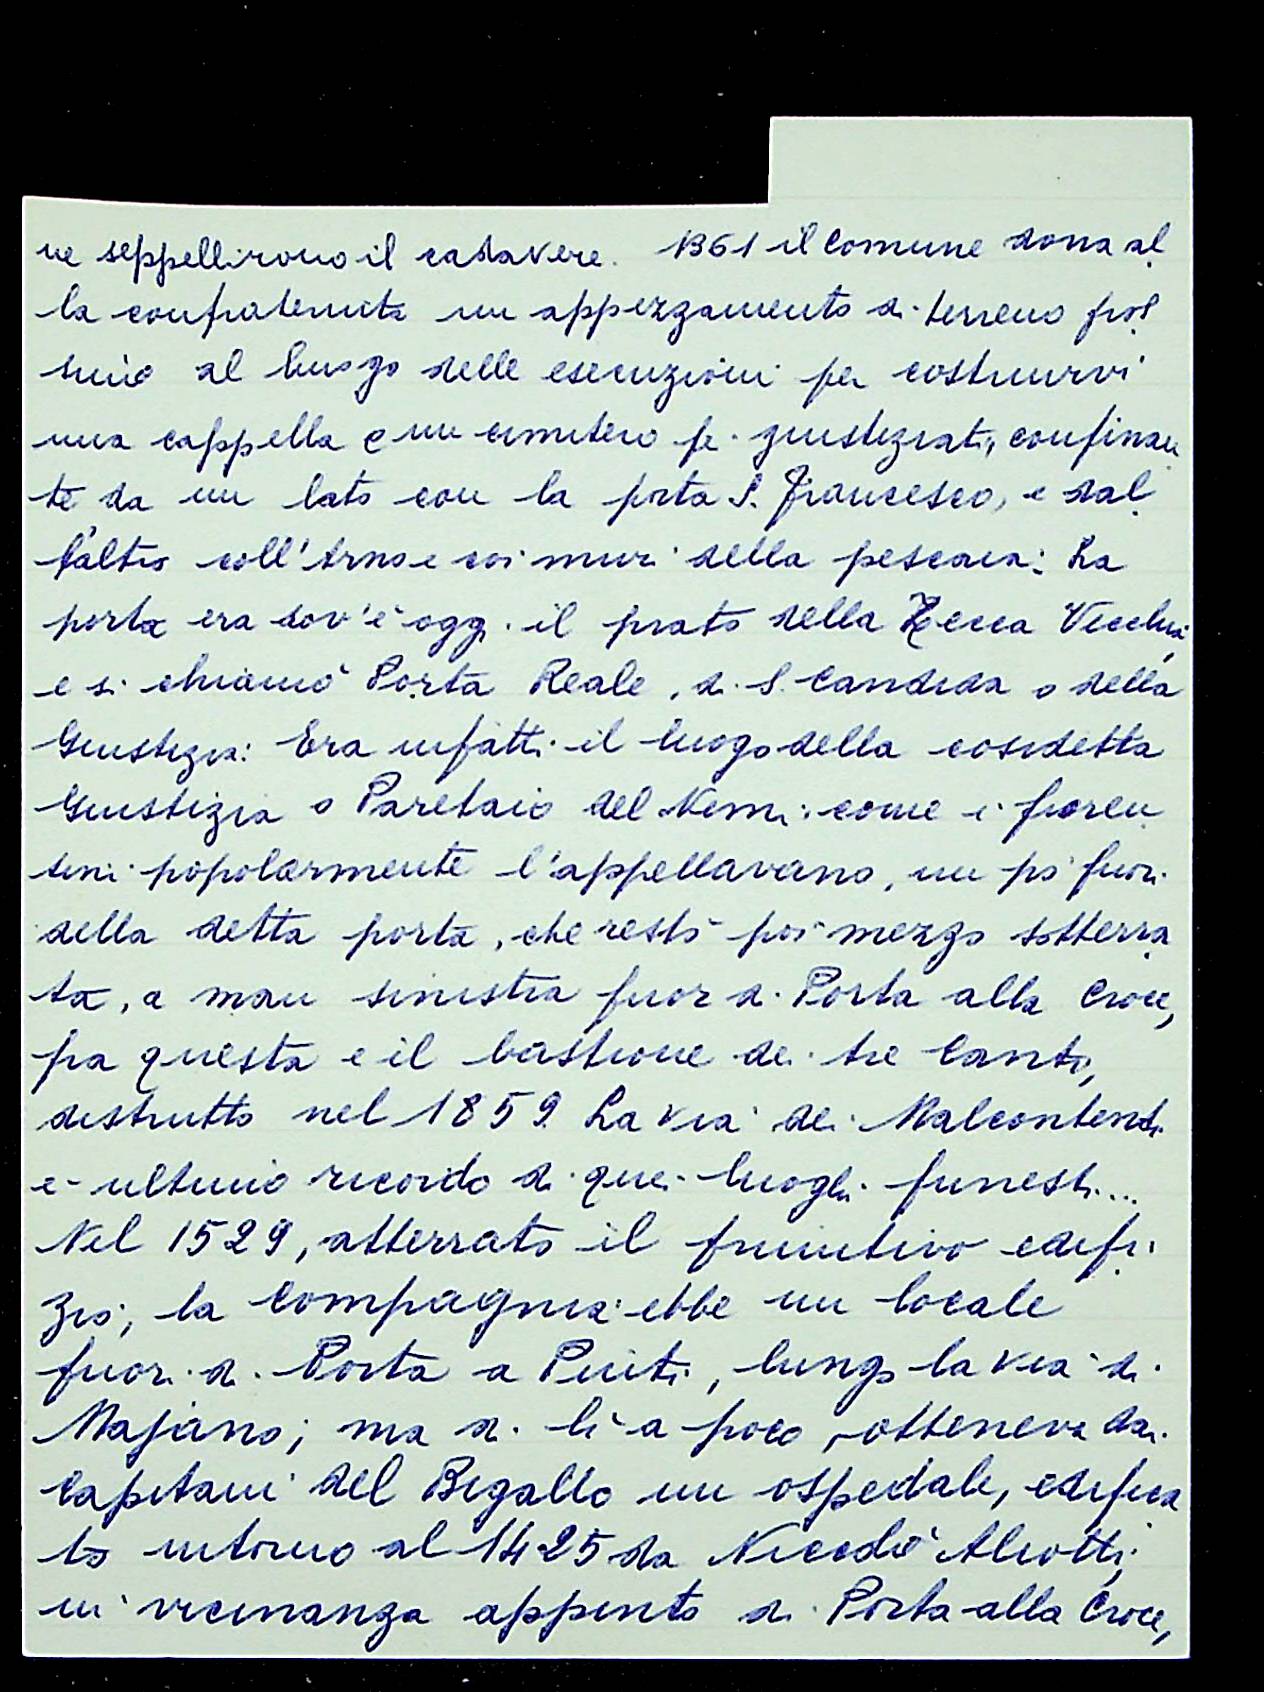 ne seppellirono il cadavere. 1361 il Comune dona al
la confraternita un appezzamento di terreno pros
simo al luogo delle esecuzioni per costruirvi
una cappella e un cimitero pe. giustiziati, confinan
te da un lato con la porta S. Francesco, e dal
l'altro coll'Arno e coi muri della pescaia: La
porta era dov'è oggi il prato della Zecca Vecchia
e si chiamò Porta Reale, di S. Candida o della
Giustizia: Era infatti il luogo della cosidetta
Giustizia o Paretaio del Nemi: come i fioren
tini popolarmente l'appellavano, un pò fuori
della detta porta, che restò poi mezzo sotterra
ta, a man sinistra fuor di Porta alla Croce,
fra questa e il bastione dei tre Canti,
distrutto nel 1859. La via dei Malcontenti
è ultimo ricordo di quei luoghi funesti....
Nel 1529, atterrato il primitivo edifi
zio, la Compagnia ebbe un locale
fuori di Porta a Pinti, lungo la via di
Majano; ma di lì a poco, otteneva dai
Capitani del Bigallo un ospedale, edifica
to intorno al 1425 da Niccolò Aliotti;
in vicinanza appunto di Porta alla Croce,